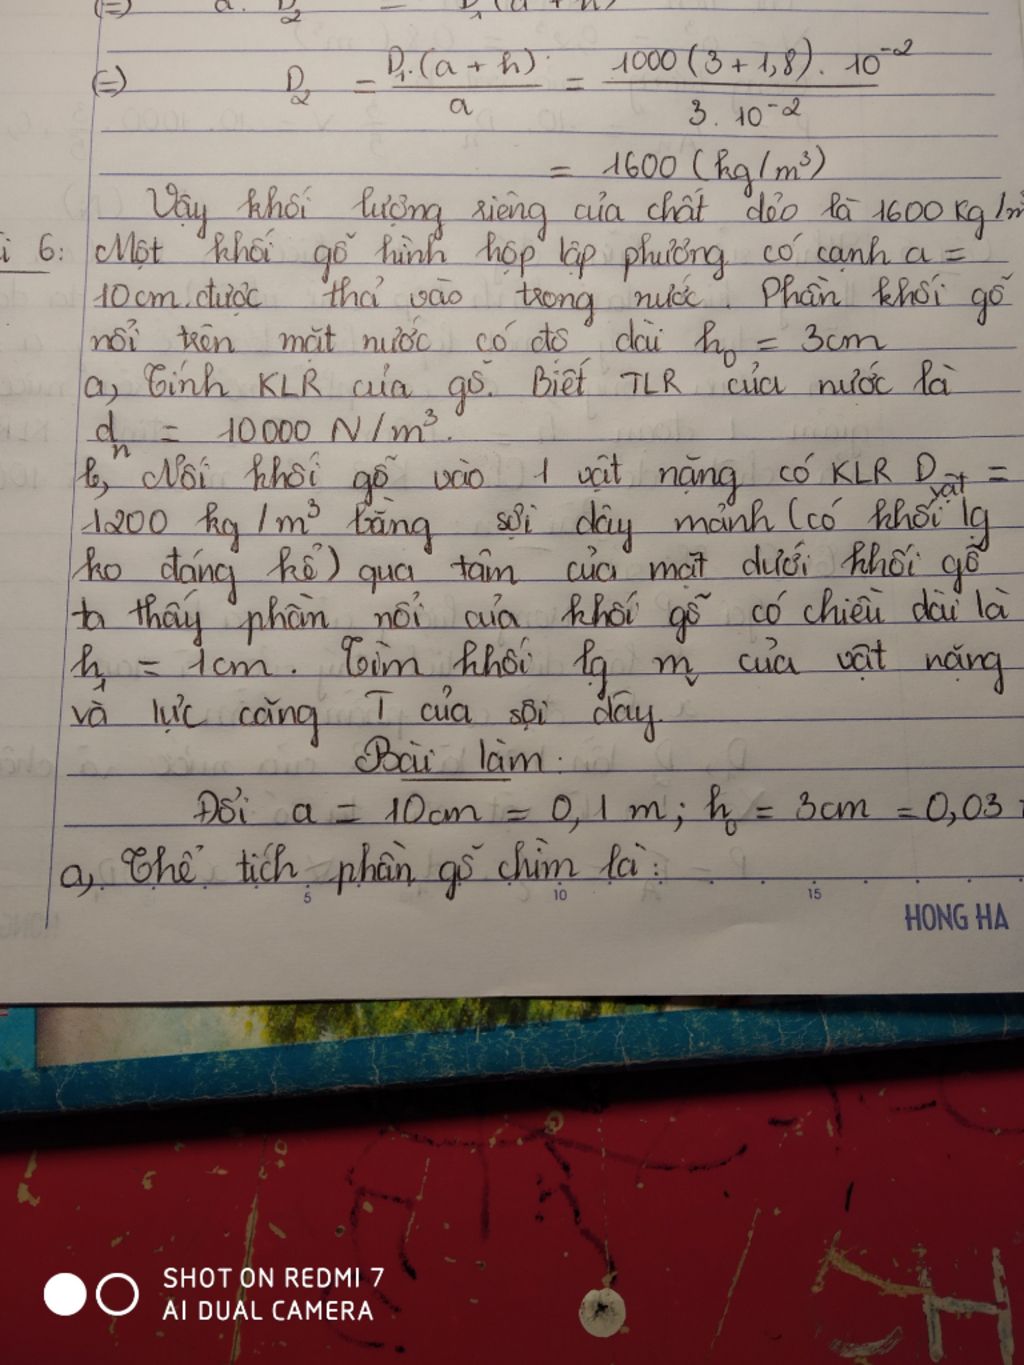 (=) a. D2 = D1(a+h)
(=) D2 = D1.(a+h) / a = 1000(3+1,8). 10⁻² / 3. 10⁻²
= 1600 (kg/m³)
Vậy khối lượng riêng của chất dẻo là 1600 Kg/m³
i 6: Một khối gỗ hình hộp lập phương có cạnh a =
10cm. được thả vào trong nước. Phần khối gỗ
nổi trên mặt nước có độ dài h₀ = 3cm
a, Tính KLR của gỗ. Biết TLR của nước là
dn = 10000 N/m³.
b, Nối khối gỗ vào 1 vật nặng có KLR Dvật =
1200 kg/m³ bằng sợi dây mảnh (có khối lg
ko đáng kể) qua tâm của mặt dưới khối gỗ
ta thấy phần nổi của khối gỗ có chiều dài là
h₁ = 1cm. Tìm khối lg mv của vật nặng
và lực căng T của sợi dây.
Bài làm:
Đổi a = 10cm = 0,1 m; h₀ = 3cm = 0,03
a, Thể tích phần gỗ chìm là:
5 10 15
HONG HA
SHOT ON REDMI 7
AI DUAL CAMERA